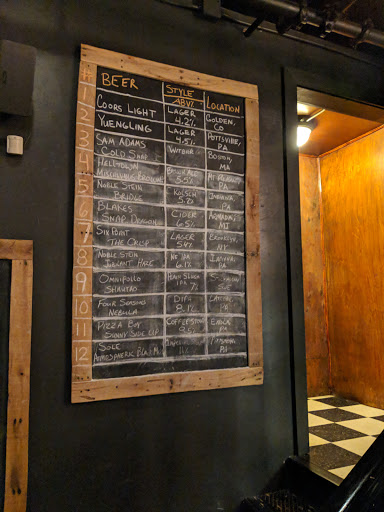 # BEER STYLE ABV% LOCATION
1 COORS LIGHT LAGER 4.2% GOLDEN, CO
2 YUENGLING LAGER 4.5% POTTSVILLE, PA
3 SAM ADAMS COLD SNAP WITBIER BOSTON, MA
4 HELLTOWN MISCHIEVOUS 5.5% MT PLEASANT, PA
5 NOBLE STEIN BRIDGE KOLSCH 5.2% INDIANA, PA
6 BLAKES SNAP DRAGON CIDER 6.5% ARMADA, MI
7 SIX POINT THE CRISP LAGER 5.4% BROOKLYN, NY
8 NOBLE STEIN NE IPA 6.1% INDIANA, PA
9 OMNIPOLLO IPA 7%
10 FOUR SEASONS NEBULA DIPA 8.1% LATROBE, PA
11 PIZZA BOY SUNNY SIDE UP COFFEE STOUT ENOLA, PA
12 SOLE ATMOSPHERIC